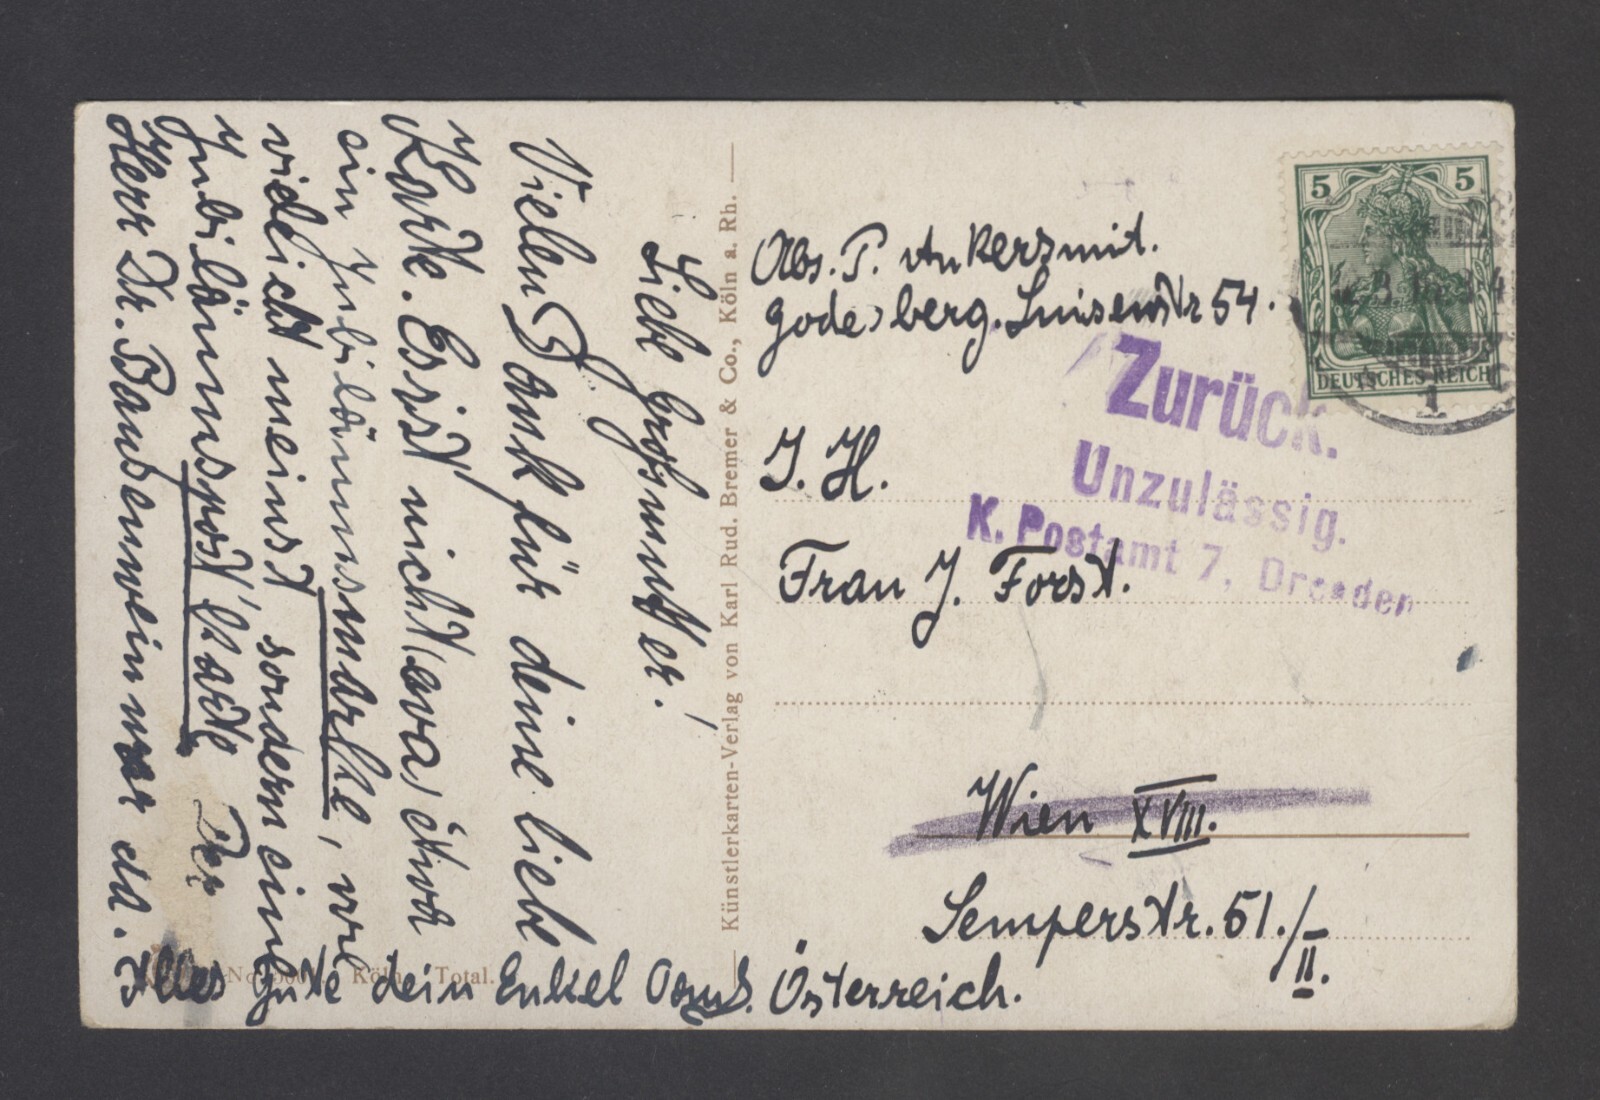 Liebe Großmutter!
Vielen Dank für deine liebe
Karte. Es ist nicht (ava) etwa
ein Jubiläumsmarke, wie
vielleicht meinst sondern eine
Jubiläumspost'karte Der
Herr Dr. Bausenwein war da.
Alles gute dein Enkel
Künstlerkarten-Verlag von Karl Rud. Bremer & Co., Köln a. Rh.
No.
Köln
Total.
Abs. P. Ankersmit.
Godesberg. Luisenstr 54.
5 5
DEUTSCHES REICH
1
Zurück.
Unzulässig.
K. Postamt 7, Dresden
I. H.
Frau J. Forst.
Wien XVIII.
Semperstr. 51./II.
Österreich.